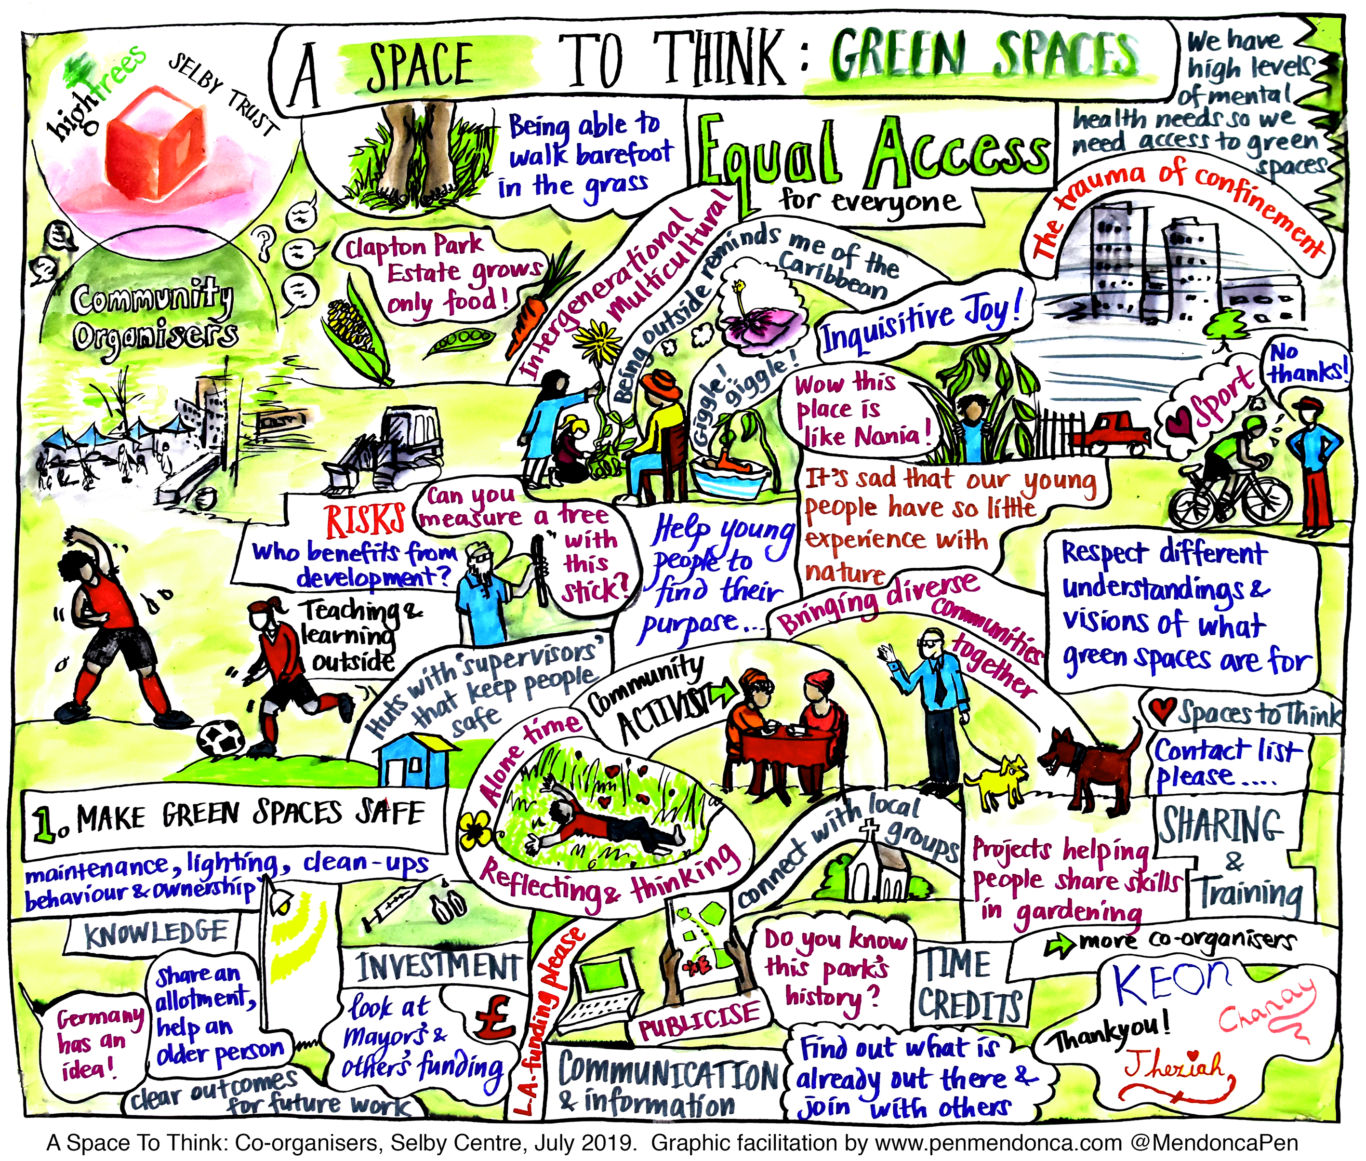 high trees
SELBY TRUST
A SPACE TO THINK: GREEN SPACES
We have
high levels
of mental
health needs so we
need access to green
spaces
Being able to
walk barefoot
in the grass
Equal Access
for everyone
The trauma of confinement
Community
Organisers
Clapton Park
Estate grows
only food!
Intergenerational
Multicultural
Being outside reminds me of the
Caribbean
Inquisitive Joy!
Giggle!
giggle!
Wow this
place is
like Nania!
♥ Sport
No
thanks!
RISKS
Who benefits from
development?
Can you
measure a tree
with
this
stick?
Help young
people to
find their
purpose...
It's sad that our young
people have so little
experience with
nature
Bringing diverse
communities
together
Respect different
understandings &
visions of what
green spaces are for
Teaching &
learning
outside
Huts with 'supervisors'
that keep people
safe
Community
ACTIVIST
♥ Spaces to Think
Contact list
please....
Alone time
Reflecting & thinking
1. MAKE GREEN SPACES SAFE
maintenance, lighting, clean-ups
behaviour & ownership
connect with local
groups
Projects helping
people share skills
in gardening
SHARING
&
Training
KNOWLEDGE
Germany
has an
idea!
Share an
allotment,
help an
older person
clear outcomes
for future work
INVESTMENT
look at
Mayor's &
others' funding
£
L.A. funding please
PUBLICISE
Do you know
this park's
history?
TIME
CREDITS
more co-organisers
COMMUNICATION
& information
Find out what is
already out there &
join with others
KEON
Thankyou!
Chanay
Jheziah
A Space To Think: Co-organisers, Selby Centre, July 2019. Graphic facilitation by www.penmendonca.com @MendoncaPen